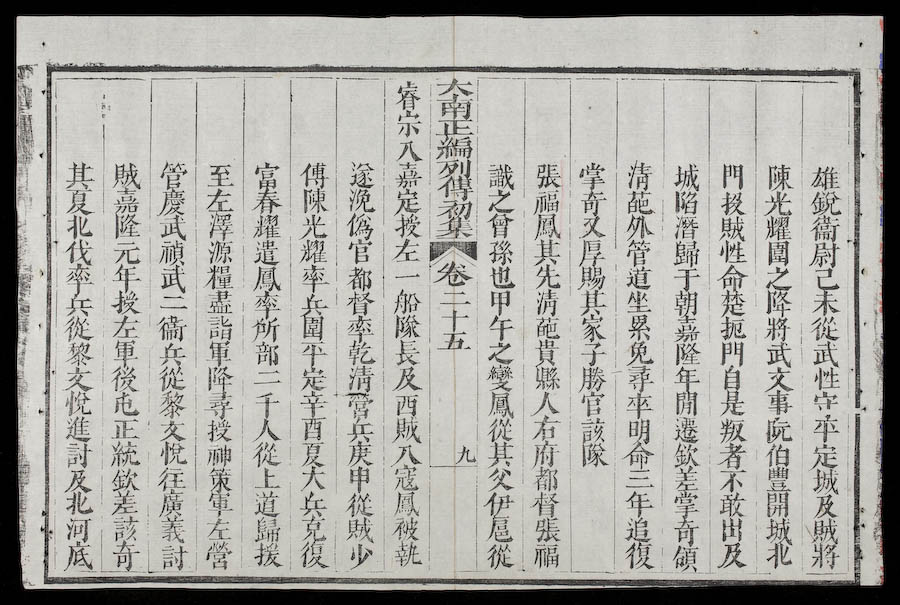 雄銳衞尉己未從武性守平定城及賊將
陳光耀圍之降將武文事阮伯豐開城北
門投賊性命楚扼門自是叛者不敢出及
城陷潛歸于朝嘉隆年閒遷欽差掌奇領
淸葩外管道坐累免尋卒明命三年追復
掌奇又厚賜其家子勝官該隊
張福鳳其先淸葩貴縣人右府都督張福
識之曾孫也甲午之變鳳從其父伊扈從
大南正編列傳初集 卷二十五 九
睿宗入嘉定授左一船隊長及西賊入寇鳳被執
遂浼僞官都督率乾淸營兵庚申從賊少
傅陳光耀率兵圍平定辛酉夏大兵克復
富春耀遣鳳率所部二千人從上道歸援
至左澤源糧盡詣軍降尋授神策軍左營
管慶武禎武二衞兵從黎文悅往廣義討
賊嘉隆元年授左軍後屯正統欽差該奇
其夏北伐率兵從黎文悅進討及北河底